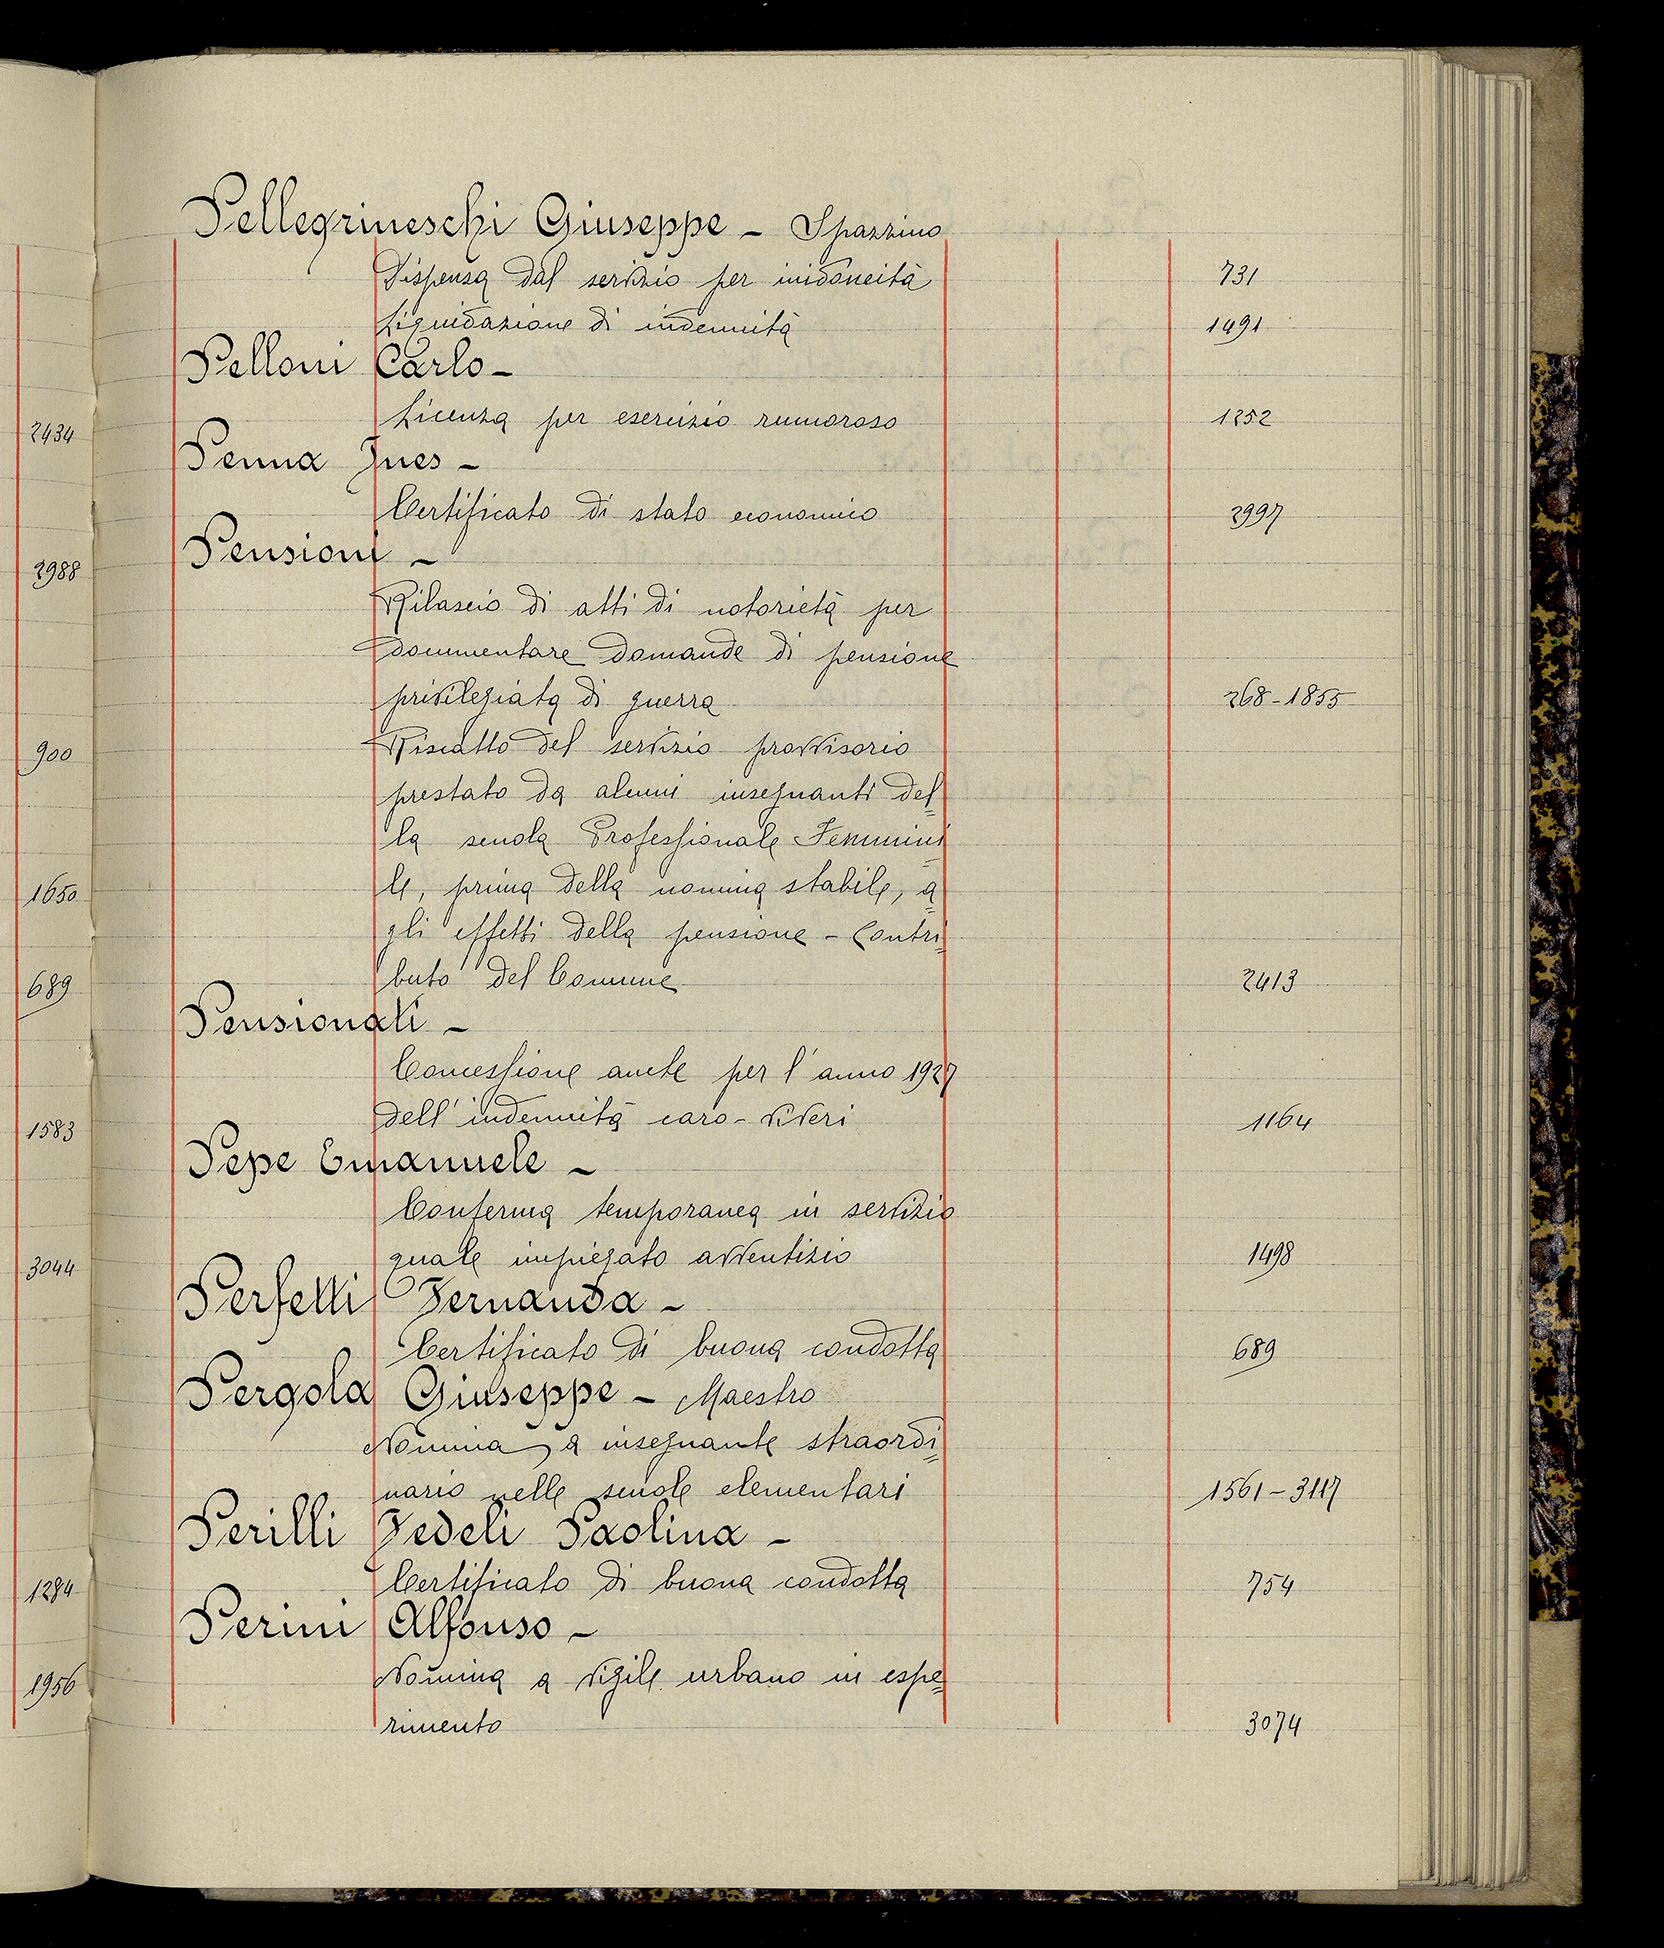 2434
2988
900
1650
689
1583
3044
1284
1956
Pellegrineschi Giuseppe - Spazzino
Dispensa dal servizio per inidoneità 731
Liquidazione di indennità 1491
Pelloni Carlo -
Licenza per esercizio rumoroso 1252
Penna Ines -
Certificato di stato economico 2997
Pensioni -
Rilascio di atti di notorietà per
documentare domande di pensione
privilegiata di guerra 268-1855
Riscatto del servizio provvisorio
prestato da alcuni insegnanti del=
la scuola Professionale Femmini=
le, prima della nomina stabile, a=
gli effetti della pensione - Contri=
buto del Comune 2413
Pensionati -
Concessione anche per l'anno 1927
dell'indennità caro-viveri 1164
Pepe Emanuele -
Conferma temporanea in servizio
quale impiegato avventizio 1498
Perfetti Fernanda -
Certificato di buona condotta 689
Pergola Giuseppe - Maestro
Nomina a insegnante straordi=
nario nelle scuole elementari 1561-3117
Perilli Fedeli Paolina -
Certificato di buona condotta 754
Perini Alfonso -
Nomina a vigile urbano in espe=
rimento 3074